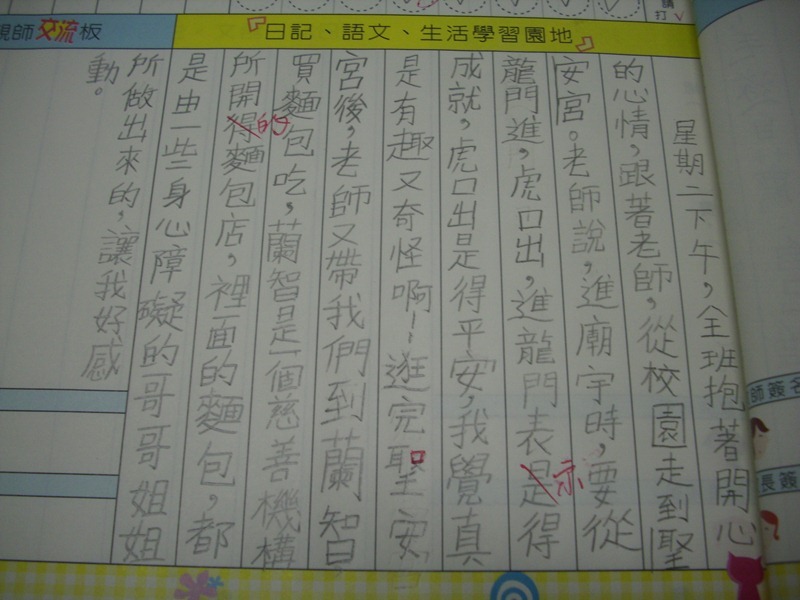 請
打✓
『日記、語文、生活學習園地』
親師交流板
星期二下午，全班抱著開心
的心情，跟著老師，從校園走到聖
安宮。老師說，進廟宇時，要從
龍門進，虎口出，進龍門表是示得
成就，虎口出是得平安，我覺真
是有趣又奇怪啊！逛完聖安
宮後，老師又帶我們到蘭智，
買麵包吃，蘭智是一個慈善機構
所開得的麵包店，裡面的麵包，都
是由一些身心障礙的哥哥姐姐
所做出來的，讓我好感
動。
師簽名
長簽